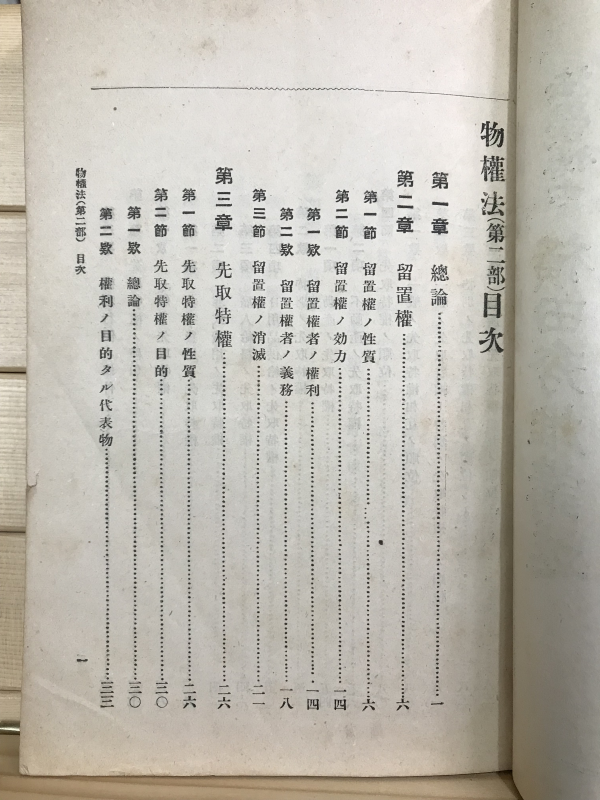 物權法(第二部)目次
第一章 總論……一
第二章 留置權……六
第一節 留置權ノ性質……六
第二節 留置權ノ効力……一四
第一欵 留置權者ノ權利……一四
第二欵 留置權者ノ義務……一八
第三節 留置權ノ消滅……二一
第三章 先取特權……二六
第一節 先取特權ノ性質……二六
第二節 先取特權ノ目的……三〇
第一欵 總論……三〇
第二欵 權利ノ目的タル代表物……三三
物權法(第二部) 目次
一